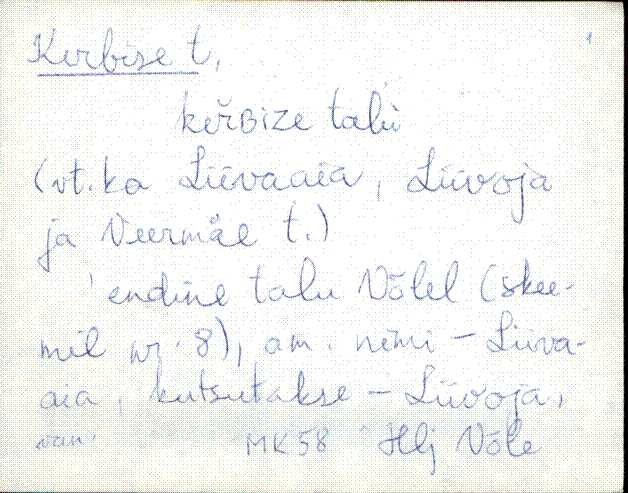 Kerbise t,
keřʙize talu
(vt. ka Liivaaia, Liivoja
ja Veermäe t.)
'endine talu Võlel (skee-
mil nr. 8), am. nimi – Liiva-
aia, kutsutakse – Liivoja,
van'
MK58 Hlj Võle
1